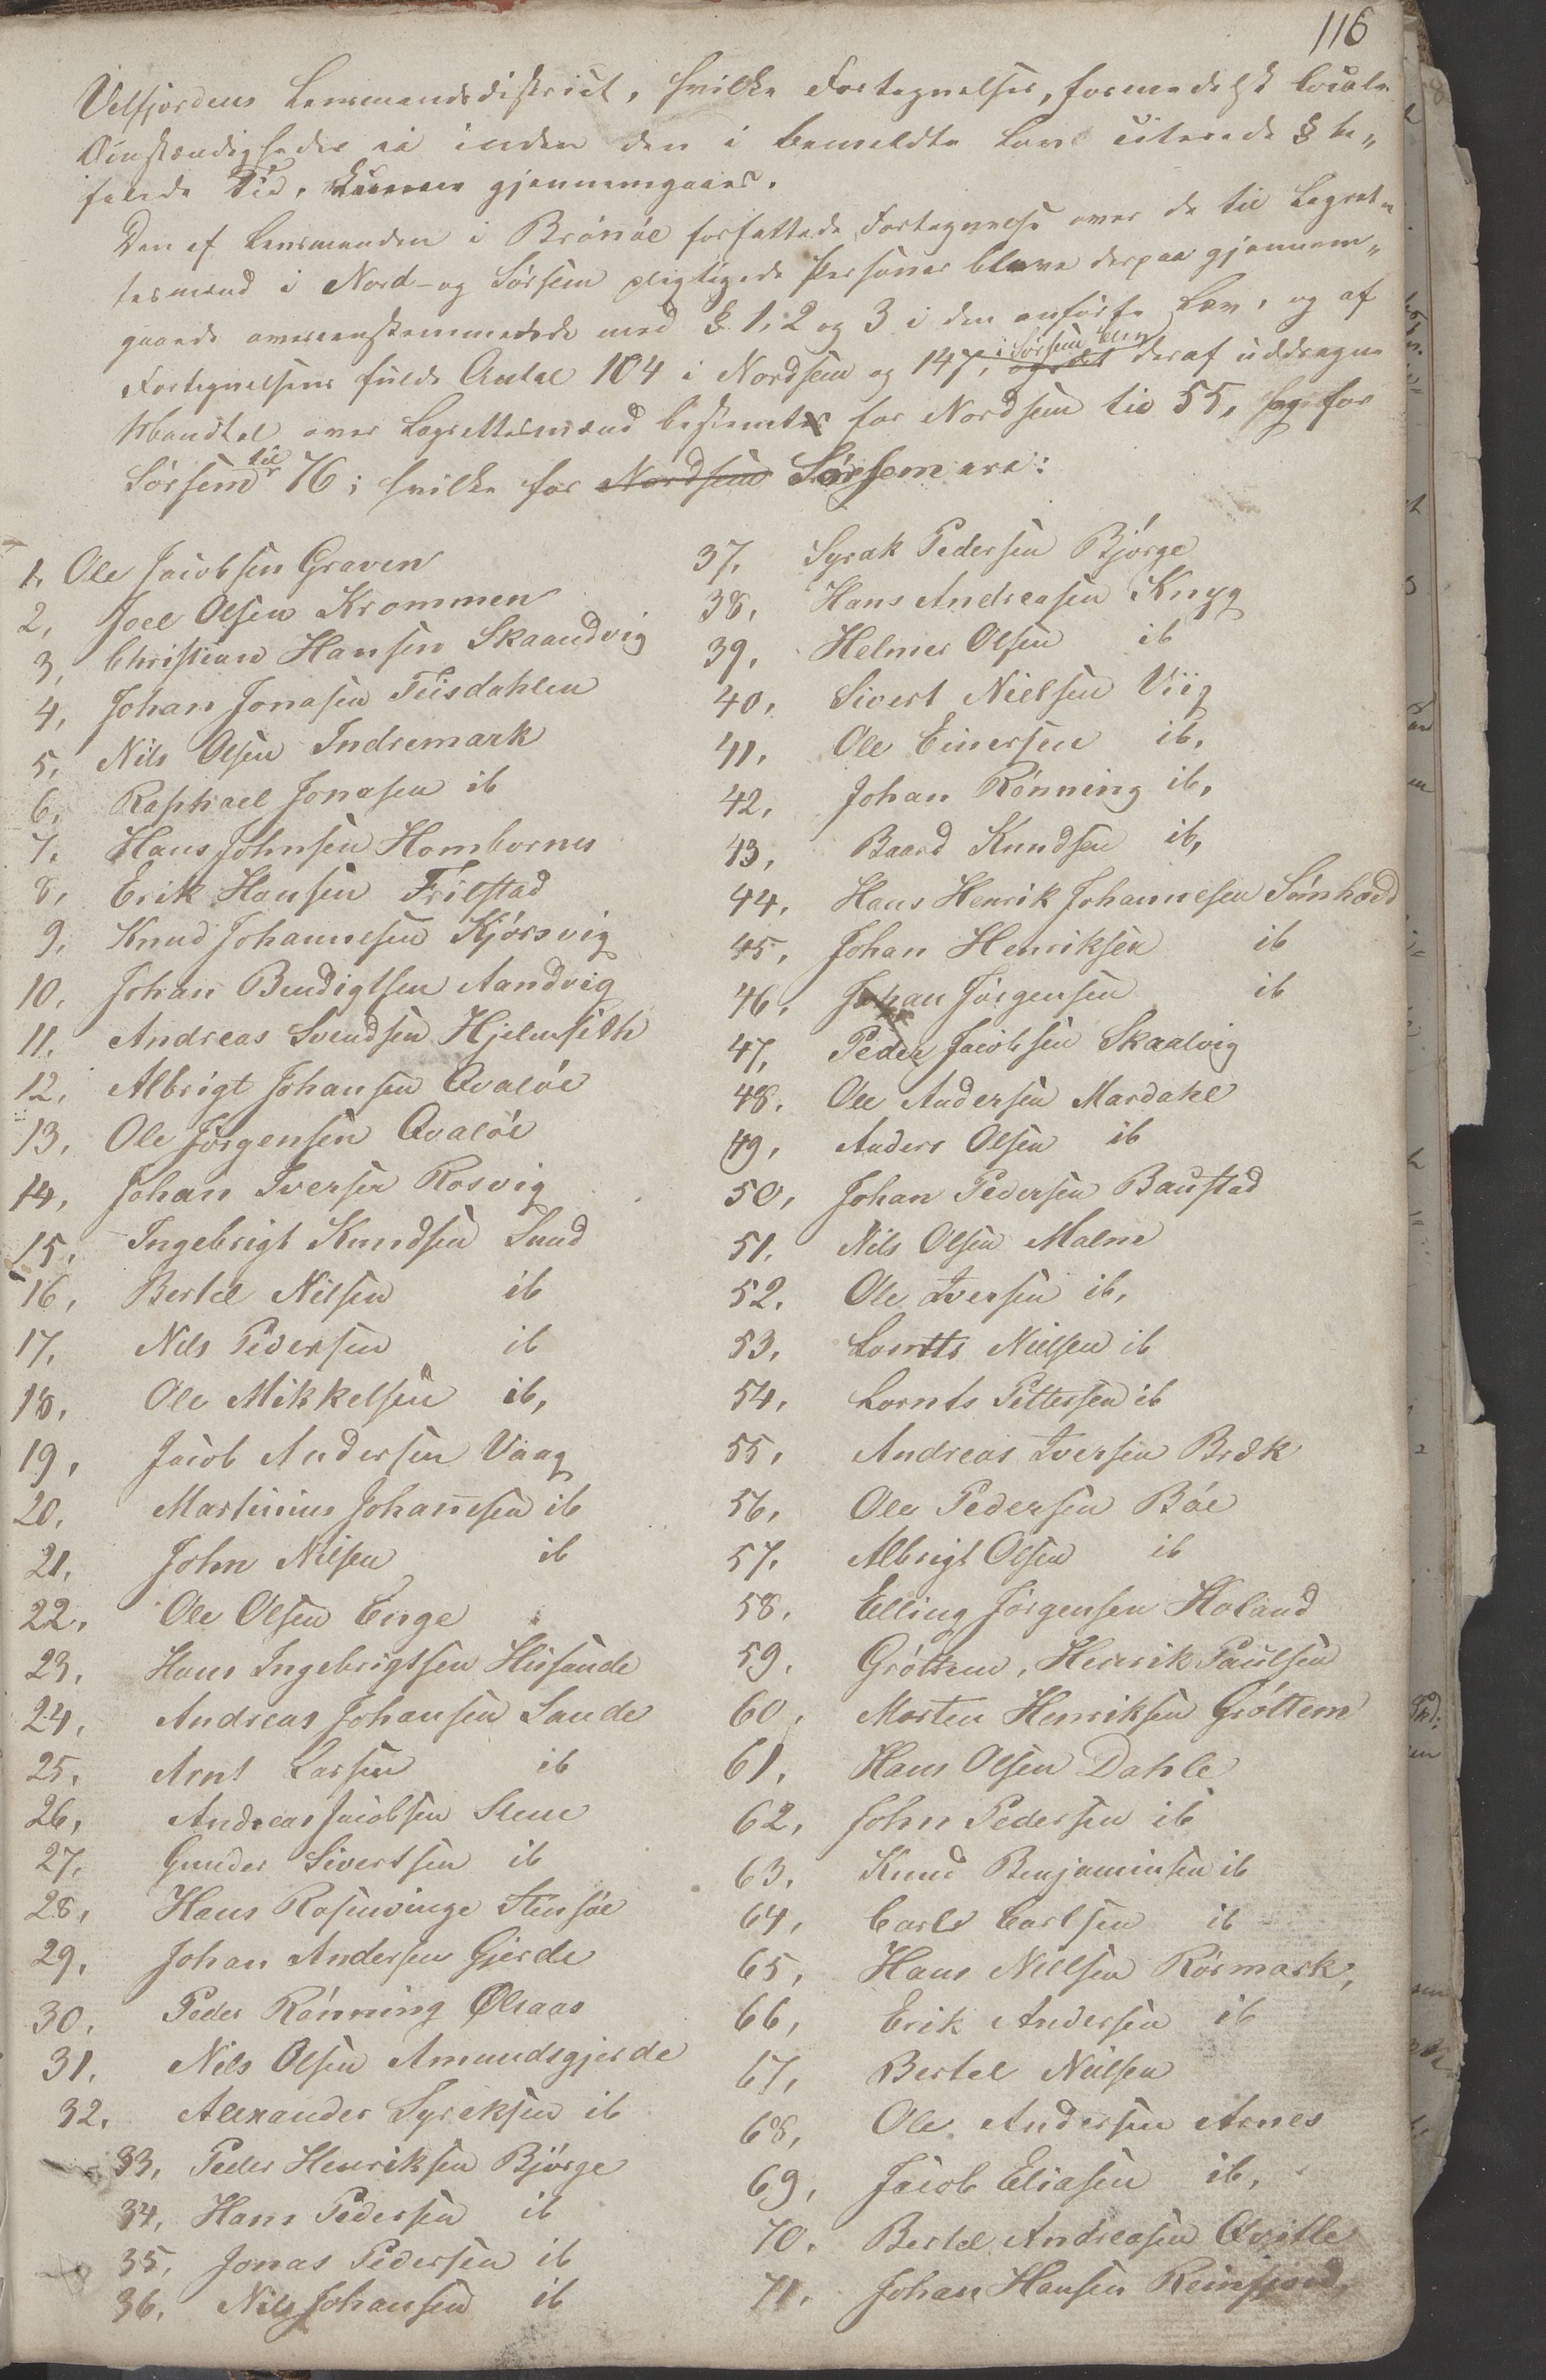 116
Velfjordens Lensmandsdistrict, hvilke Fortegnelser, formedelst locale
Omstændigheder ei inden den i bemeldte Lov citerede § be„
falede Tid, kunne gjennemgaaes.
Den af Lensmanden i Brönöe forfattede Fortegnelse over de til Lagret„
tesmænd i Nord- og Sörsem pligtigede Personer bleve derpaa gjennem„
gaaede overeensstemmende med § 1, 2 og 3 i den anförte Lov, og af
Fortegnelsens fulde Antal 104 i Nordsem og 147, i Sörsem blev deraf uddragne
Mandtal over Lagrettesmænd bestemt for Nordsem til 55, og for
Sörsem til 76; hvilke for Nordsem Sörsem ere:
1. Ole Jacobsen Graven
2, Joel Olsen Krommen
3, Christian Hansen Skaandvig
4, Johan Jonasen Teisdahlen
5, Nils Olsen Indremark
6, Raphael Jonasen ib
7. Hans Johnsen Hombornes
8, Erik Hansen Trælstad
9, Knud Johannesen Kjörsvig
10, Johan Bendigtsen Aandvig
11, Andreas Svendsen Hjelmseth
12, Albrigt Johansen Qvalöe
13, Ole Jörgensen Qvalöe
14, Johan Iversen Rosvig
15, Ingebrigt Knudsen Sund
16, Bertel Nilsen ib
17, Nils Pedersen ib
18, Ole Mikkelsen ib,
19, Jacob Andersen Vaag
20, Martinius Johannesen ib
21, John Nilsen ib
22, Ole Olsen Enge
23, Hans Ingebrigtsen Hiisande
24, Andreas Johansen Sande
25, Arnt Larsen ib
26, Andreas Jacobsen Steen
27, Gunder Sivertsen ib
28, Hans Rosenvinge Stensöe
29, Johan Andersen Gjerde
30, Peder Rönning Ølraas
31, Nels Olsen Amundsgjerde
32, Alexander Syraksen ib
33, Peder Henriksen Björge
34, Hans Pedersen ib
35, Jonas Pedersen ib
36, Nils Johansen ib
37, Syrak Pedersen Björge
38, Hans Andreasen Knyg
39, Helmer Olsen ib
40, Sivert Nielsen Viig
41, Ole Einersen ib,
42, Johan Rönning ib,
43, Baard Knudsen ib,
44, Hans Henrik Johannesen Sönhaed
45, Johan Henriksen ib
46, Johan Jörgensen ib
47, Peder Jacobsen Skaalvig
48, Ole Andersen Mardahl
49, Anders Olsen ib
50, Johan Pedersen Baustad
51, Nils Olsen Malm
52, Ole Iversen ib,
53, Lornts Nielsen ib
54, Lornts Pettersen ib
55, Andreas Iversen Bræk
56, Ole Pedersen Böe
57, Albrigt Olsen ib
58, Elling Jörgensen Holand
59, Gröttem, Henrik Paulsen
60, Morten Henriksen Gröttem
61, Hans Olsen Dahle
62, John Pedersen ib
63, Knud Benjaminsen ib
64, Carl Carlsen ib
65, Hans Nielsen Rörmark,
66, Erik Andersen ib
67, Bertel Nielsen
68, Ole Andersen Arnes
69, Jacob Eliasen ib,
70, Bertel Andreasen Qvitle
71, Johan Hansen Reinfjord